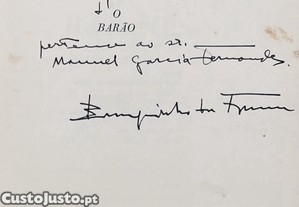 O
BARÃO
pertence ao sr.
Manuel Garcia Fernandes.
Branquinho da Fonseca
CustoJusto.pt